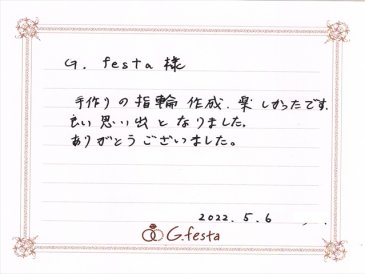 G. festa 様
手作りの指輪作成、楽しかったです。
良い思い出となりました。
ありがとうございました。
2022.5.6
G.festa